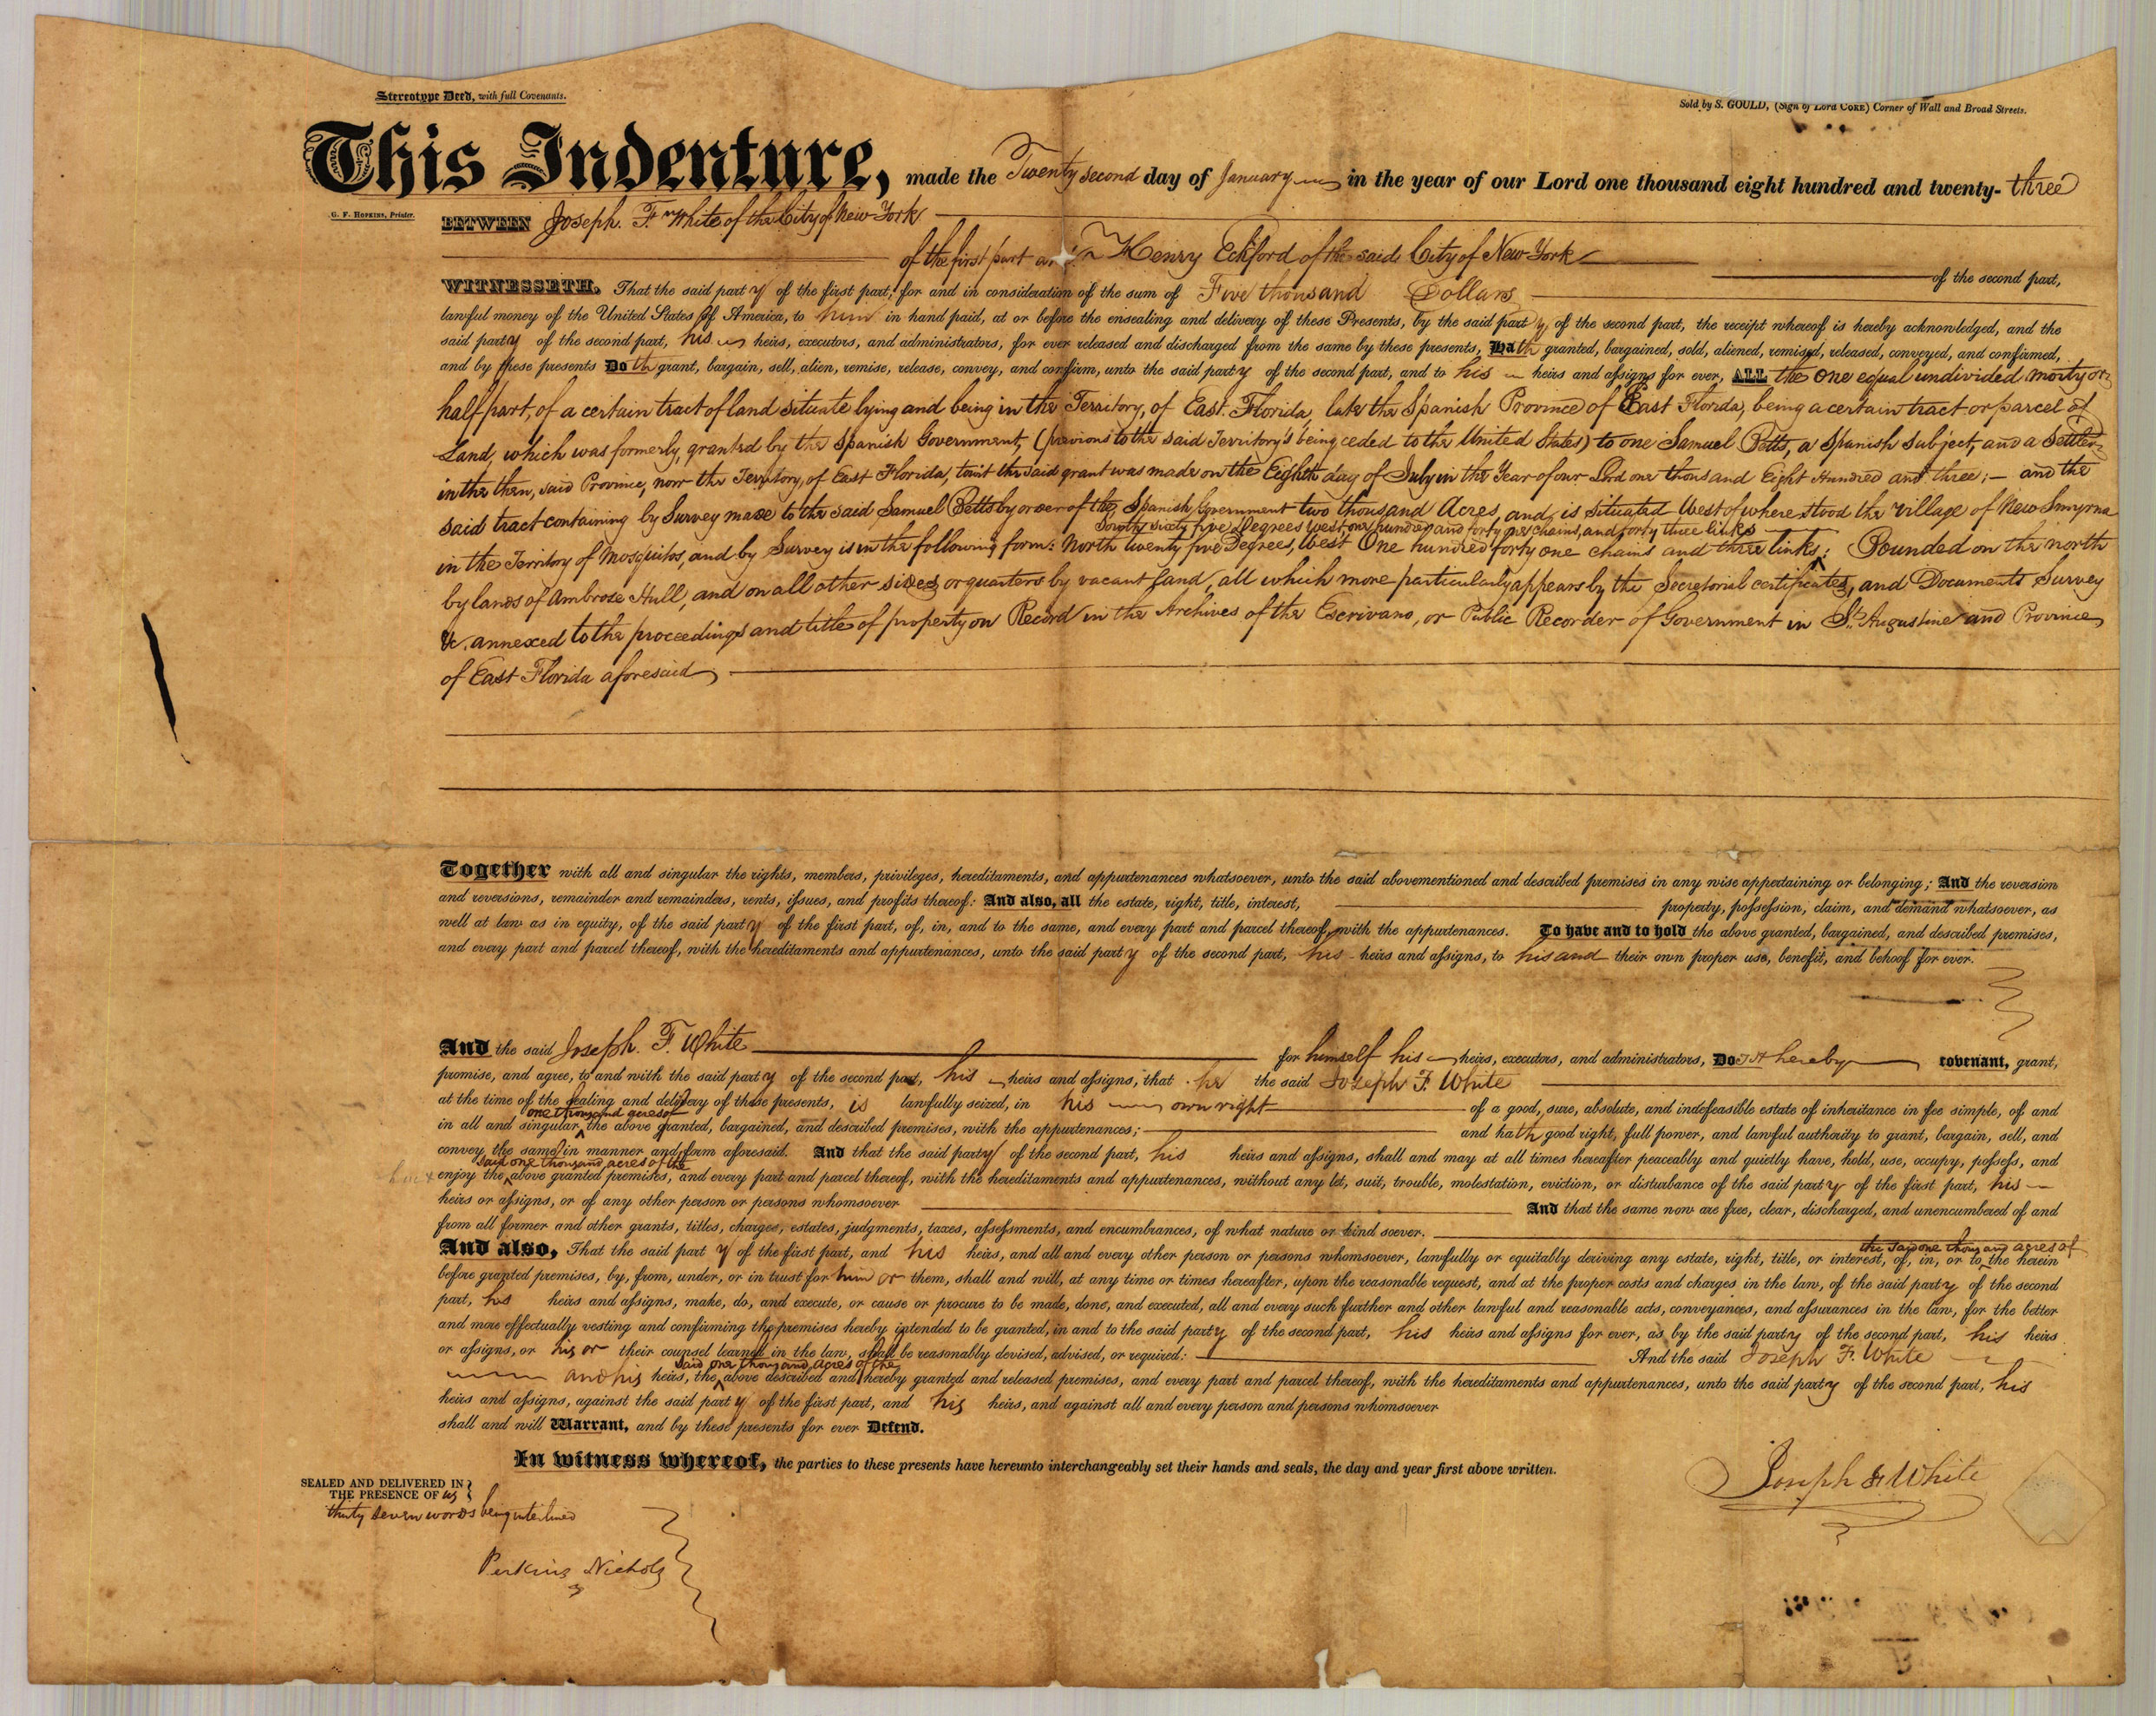 Stereotype Deed, with full Covenants.
Sold by S. GOULD, (Sign of Lord COKE) Corner of Wall and Broad Streets.
This Indenture, made the Twenty second day of January in the year of our Lord one thousand eight hundred and twenty- three
G. F. HOPKINS, Printer.
BETWEEN Joseph. F. White of the City of New York
of the first part and Henry Eckford of the said City of New York
of the second part,
WITNESSETH. That the said party of the first part, for and in consideration of the sum of Five thousand Dollars
lawful money of the United States of America, to him in hand paid, at or before the ensealing and delivery of these Presents, by the said party of the second part, the receipt whereof is hereby acknowledged, and the
said party of the second part, his heirs, executors, and administrators, for ever released and discharged from the same by these presents, Hath granted, bargained, sold, aliened, remised, released, conveyed, and confirmed,
and by these presents Doth grant, bargain, sell, alien, remise, release, convey, and confirm, unto the said party of the second part, and to his heirs and assigns for ever, ALL the one equal undivided moity or
half part, of a certain tract of land situate lying and being in the Territory, of East Florida, late the Spanish Province of East Florida, being a certain tract or parcel of
Land, which was formerly, granted by the Spanish Government, (previous to the said Territory's being ceded to the United States) to one Samuel Betts, a Spanish Subject, and a Settler
in the then, said Province, now the Territory, of East Florida, towit the said grant was made on the Eighth day of July in the Year of our Lord one thousand Eight Hundred and three; – and the
said tract containing by Survey made to the said Samuel Betts by order of the Spanish Government two thousand Acres, and is situated West of where stood the village of New Smyrna
South sixty five Degrees West one hundred and forty one chains, and forty three links
in the Territory of Mosquitos, and by Survey is in the following form: North twenty five Degrees, West One hundred forty one chains and three links; Bounded on the north
by lands of Ambrose Hull, and on all other sides or quarters by vacant Land, all which more particularly appears by the Secretorial certificates, and Documents Survey
&c. annexed to the proceedings and title of property on Record in the Archives of the Escrivano, or Public Recorder of Government in St. Augustine and Province
of East Florida aforesaid
Together with all and singular the rights, members, privileges, hereditaments, and appurtenances whatsoever, unto the said abovementioned and described premises in any wise appertaining or belonging; And the reversion
and reversions, remainder and remainders, rents, issues, and profits thereof: And also, all the estate, right, title, interest, property, possession, claim, and demand whatsoever, as
well at law as in equity, of the said party of the first part, of, in, and to the same, and every part and parcel thereof, with the appurtenances. To have and to hold the above granted, bargained, and described premises,
and every part and parcel thereof, with the hereditaments and appurtenances, unto the said party of the second part, his heirs and assigns, to his and their own proper use, benefit, and behoof for ever.
And the said Joseph. F. White for himself his heirs, executors, and administrators, Doth hereby covenant, grant,
promise, and agree, to and with the said party of the second part, his heirs and assigns, that he the said Joseph F. White
at the time of the sealing and delivery of these presents, is lawfully seized, in his own right of a good, sure, absolute, and indefeasible estate of inheritance in fee simple, of and
one thousand acres of
in all and singular, the above granted, bargained, and described premises, with the appurtenances; and hath good right, full power, and lawful authority to grant, bargain, sell, and
convey the same in manner and form aforesaid. And that the said party of the second part, his heirs and assigns, shall and may at all times hereafter peaceably and quietly have, hold, use, occupy, possess, and
said one thousand acres of the
enjoy the above granted premises, and every part and parcel thereof, with the hereditaments and appurtenances, without any let, suit, trouble, molestation, eviction, or disturbance of the said party of the first part, his
heirs or assigns, or of any other person or persons whomsoever And that the same now are free, clear, discharged, and unencumbered of and
from all former and other grants, titles, charges, estates, judgments, taxes, assessments, and encumbrances, of what nature or kind soever.
the said one thousand acres of
And also, That the said party of the first part, and his heirs, and all and every other person or persons whomsoever, lawfully or equitably deriving any estate, right, title, or interest, of, in, or to the herein
before granted premises, by, from, under, or in trust for him or them, shall and will, at any time or times hereafter, upon the reasonable request, and at the proper costs and charges in the law, of the said party of the second
part, his heirs and assigns, make, do, and execute, or cause or procure to be made, done, and executed, all and every such further and other lawful and reasonable acts, conveyances, and assurances in the law, for the better
and more effectually vesting and confirming the premises hereby intended to be granted, in and to the said party of the second part, his heirs and assigns for ever, as by the said party of the second part, his heirs
or assigns, or his or their counsel learned in the law, shall be reasonably devised, advised, or required: And the said Joseph F. White
said one thousand acres of the
and his heirs, the above described and hereby granted and released premises, and every part and parcel thereof, with the hereditaments and appurtenances, unto the said party of the second part, his
heirs and assigns, against the said party of the first part, and his heirs, and against all and every person and persons whomsoever
shall and will Warrant, and by these presents for ever Defend.
In witness whereof, the parties to these presents have hereunto interchangeably set their hands and seals, the day and year first above written.
SEALED AND DELIVERED IN
THE PRESENCE OF us
thirty seven words being interlined
Joseph F. White
Perkins Nichols